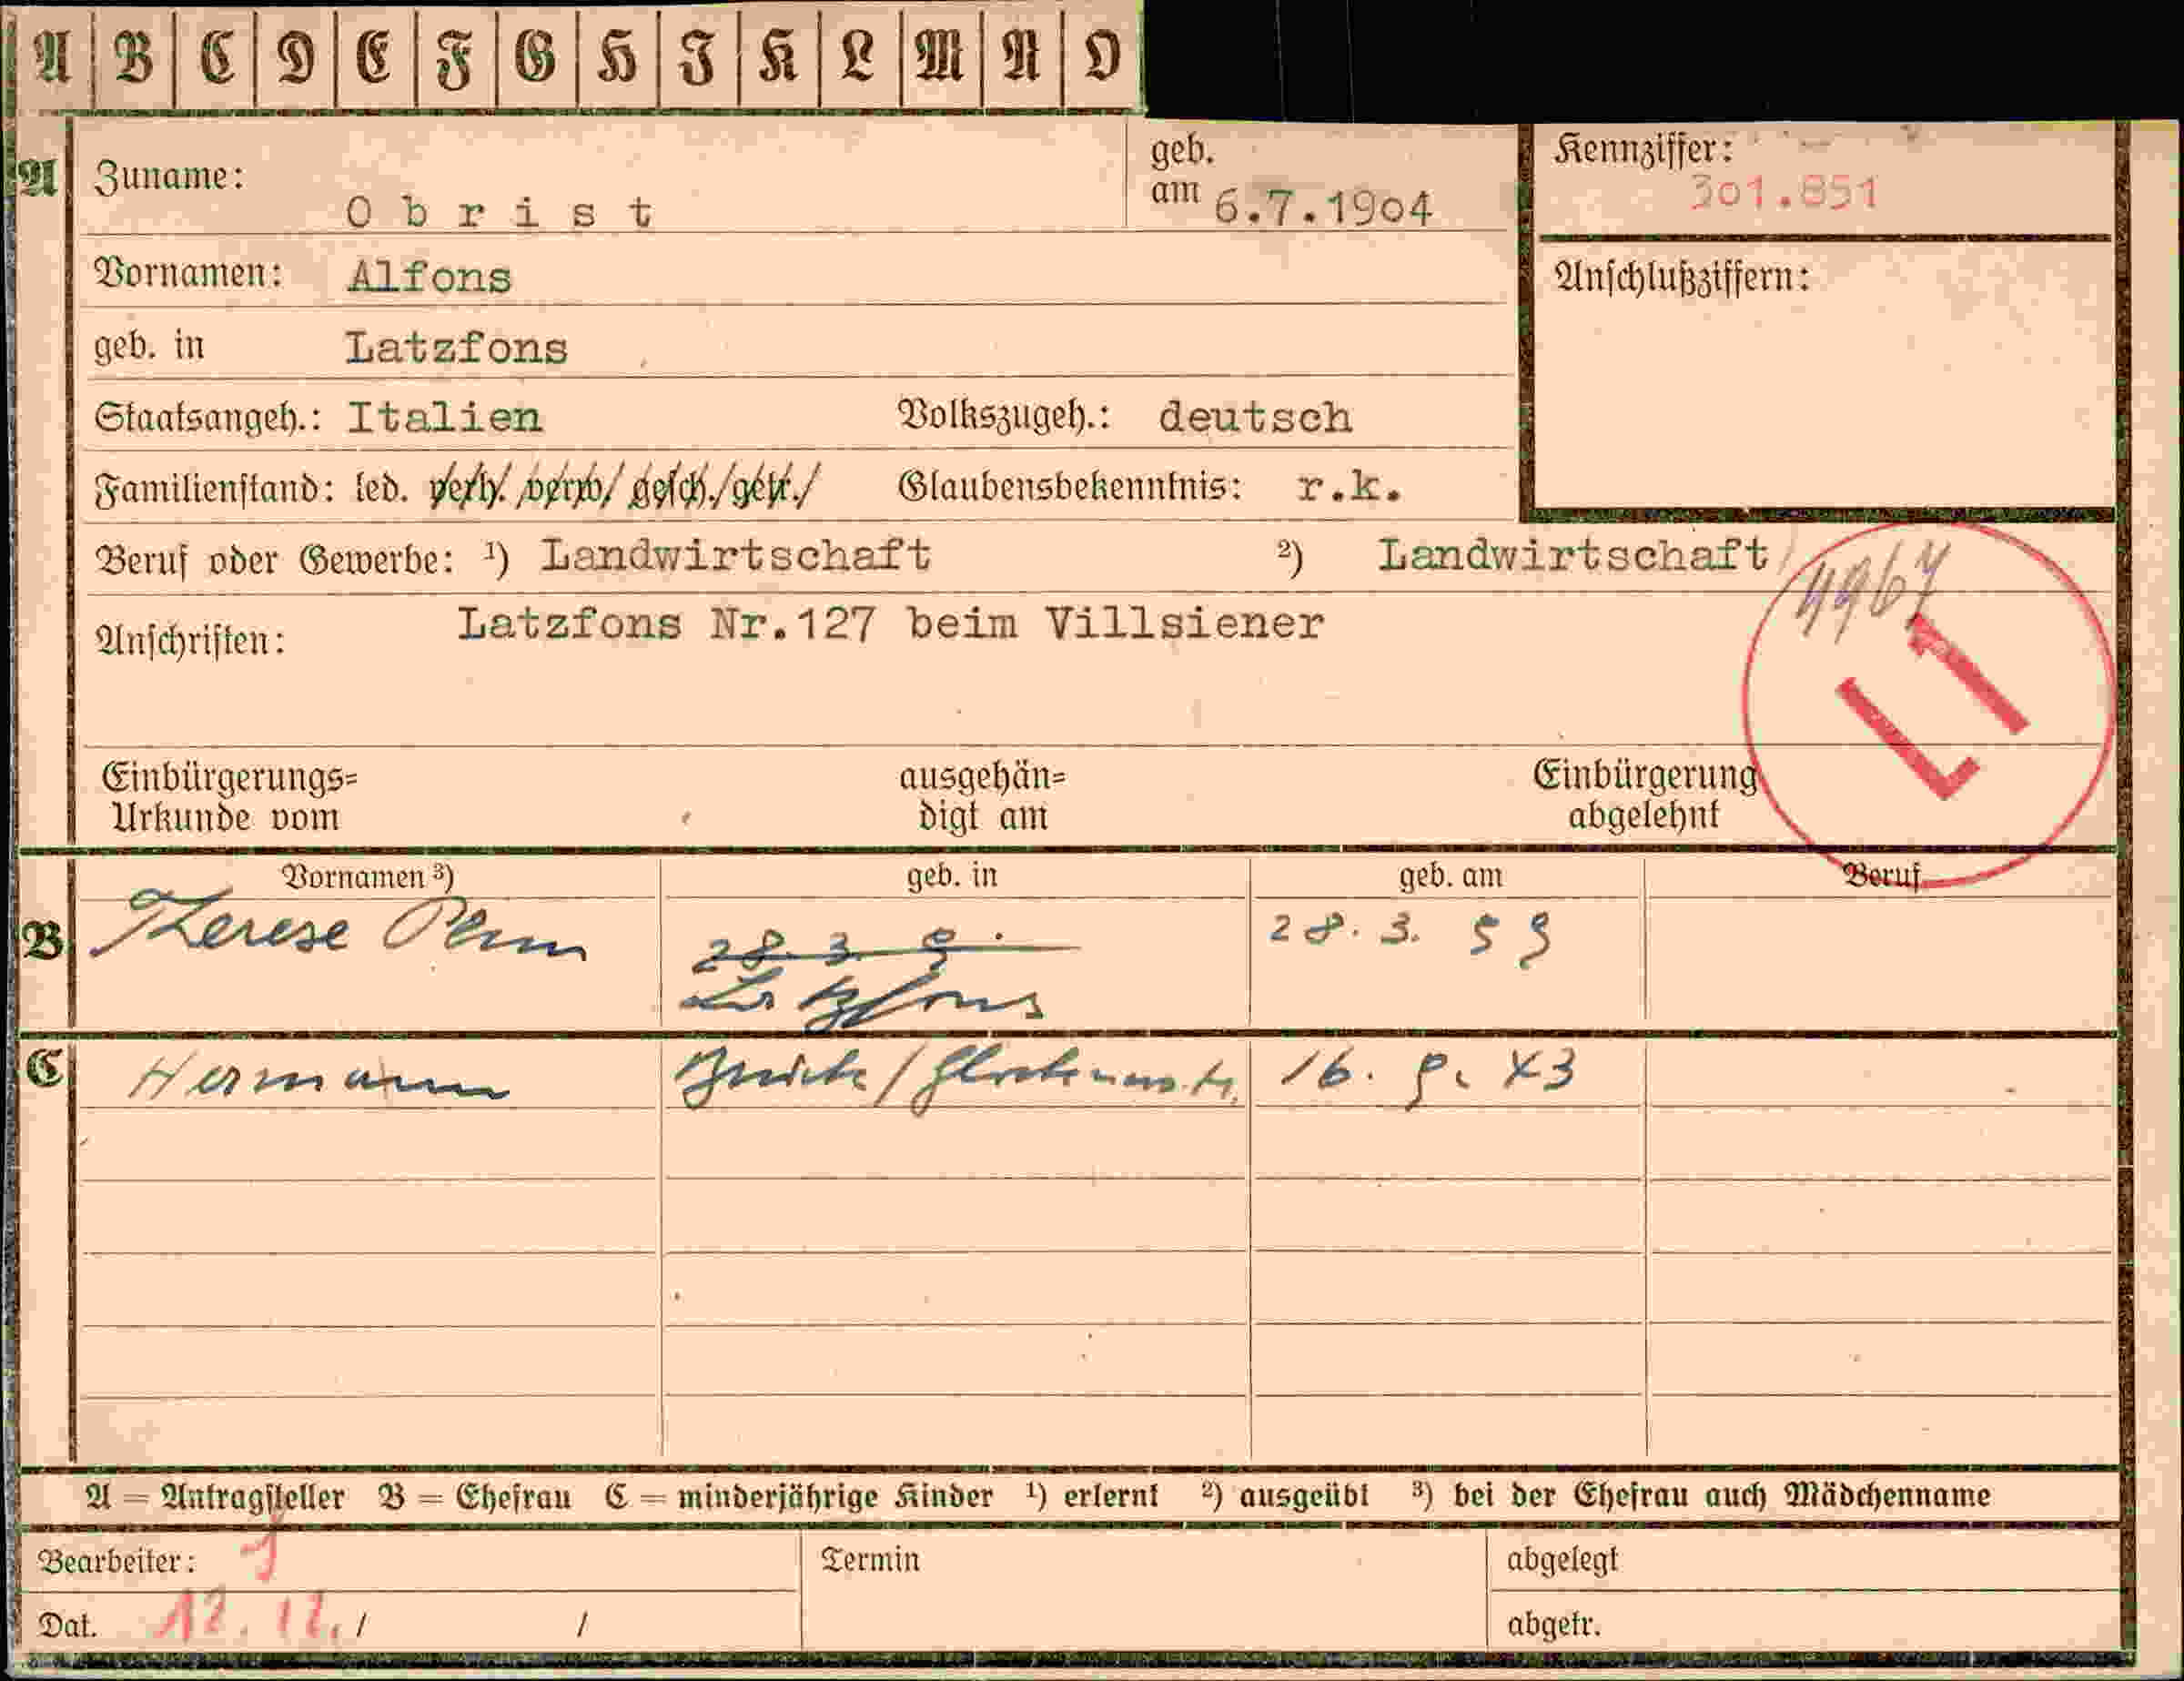 A B C D E F G H I K L M N O
A Zuname: Obrist geb. am 6.7.1904 Kennziffer: 301.851
Vornamen: Alfons Anschlußziffern:
geb. in Latzfons
Staatsangeh.: Italien Volkszugeh.: deutsch
Familienstand: led. verh./verw./gesch./getr./ Glaubensbekenntnis: r.k.
Beruf oder Gewerbe: ¹) Landwirtschaft ²) Landwirtschaft
4967
Anschriften: Latzfons Nr.127 beim Villsiener
L1
Einbürgerungs= ausgehän= Einbürgerung
Urkunde vom digt am abgelehnt
Vornamen ³) geb. in geb. am Beruf
B Therese 28. 3. 9. 28. 3. 59
Latzfons
C Hermann 16. 9. 43
A = Antragsteller B = Ehefrau C = minderjährige Kinder ¹) erlernt ²) ausgeübt ³) bei der Ehefrau auch Mädchenname
Bearbeiter: Termin abgelegt
Dat. 12. 12. / / abgetr.